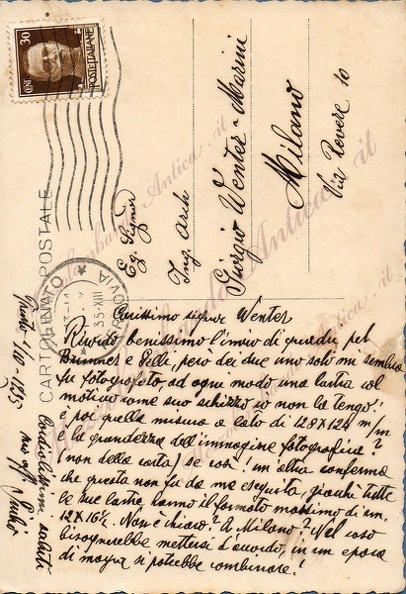 30
CENT
POSTE ITALIANE
CARTOLINA POSTALE
FERROVIA
35-XIII
Eg. Signor
Ing. Arch
Giorgio Wenter-Marini
Milano
Via Rovere 10
Carissimo signor Wenter
Ricordo benissimo l'invio di quadri pel
Brunner e Pelli, però dei due uno solo mi sembra
fu fotografato, ad ogni modo una lastra col
motivo come suo schizzo io non la tengo!
e poi quella misura a lato di 128 X 124 m/m
è la grandezza dell'immagine fotografica?
(non della carta) se così! un altra conferma
che questa non fu da me eseguita, giacchè tutte
le sue lastre hanno il formato massimo di cm.
12 X 16½. Non è chiaro? A Milano? Nel caso
bisognerebbe mettersi d'accordo, in un epoca
di mezzo si potrebbe combinare!
Cordialissimi saluti
Trento 1935